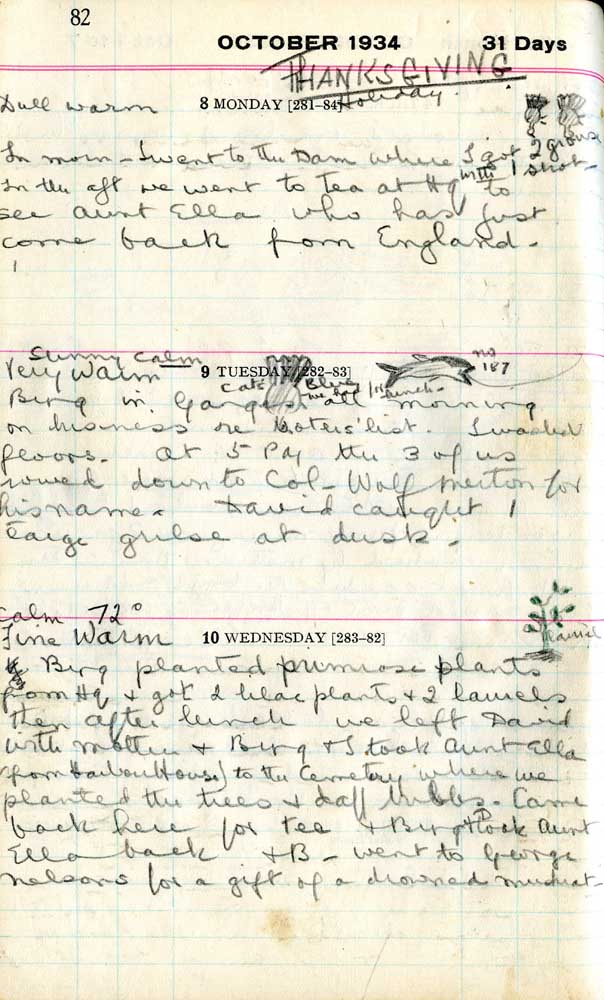 82
OCTOBER 1934 31 Days
THANKSGIVING
Holiday.
Dull warm 8 MONDAY [281–84]
In morn – I went to the Dam where I got 2 grouse
with 1 shot –
In the aft we went to tea at Hq to
see aunt Ella who has just
come back from England –
Sunny calm
Very warm 9 TUESDAY [282–83] no 187
Cats Blue we had lunch –
Birg in Ganges all morning
on business re Voters' list. I washed
floors. at 5 PM the 3 of us
rowed down to Col – Wolf merton for
his name. David caught 1
large grilse at dusk –
calm 72°
Fine Warm 10 WEDNESDAY [283–82] laurel
Birg planted primrose plants
from Hq & got 2 lilac plants & 2 laurels
then after lunch we left David
with mother & Birg & I took aunt Ella
(from Harbour House) to the Cemetery where we
planted the trees & daff bulbs – Came
back here for tea & Birg & D took aunt
Ella back & B – went to George
nelsons for a gift of a drowned muskrat –